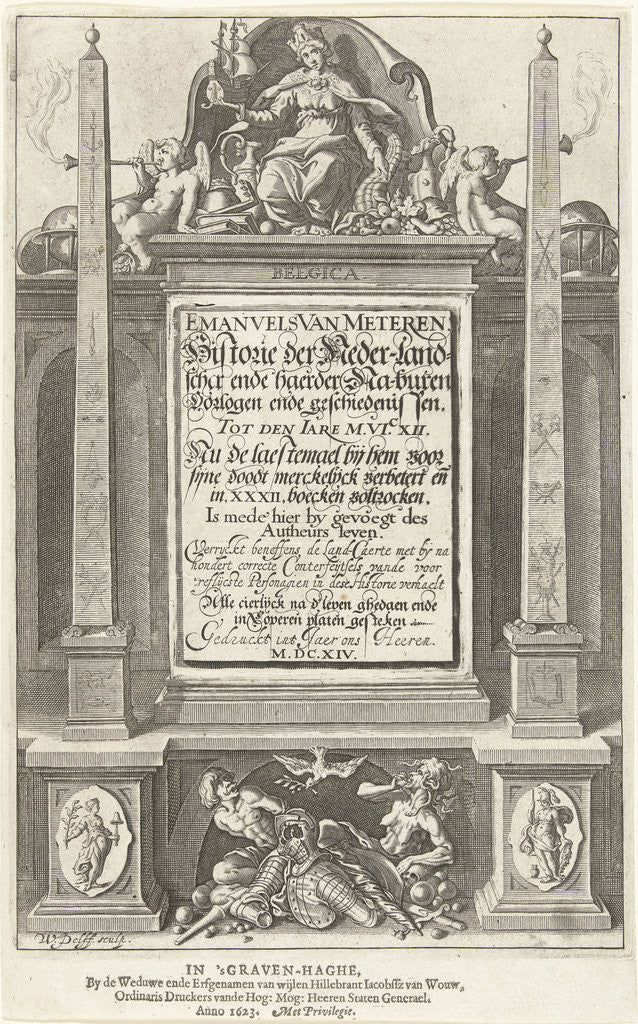 BELGICA
EMANVELS VAN METEREN.
Historie der Neder-land-
scher ende haerder Na-buren
Oorlogen ende geschiedenissen.
TOT DEN IARE M.VI.C XII.
Nu de laestemael bij hem voor
sijne doodt merckelijck verbetert en̄
in XXXII. boecken voltrocken.
Is mede hier by gevoegt des
Autheurs leven.
Verryckt beneffens de land-Caerte met by na
hondert correcte Conterfeytsels vande voor
treflijcste Personagien in dese Historie verhaelt
Alle cierlyck na d'leven ghedaen ende
in Coperen platen gesteken
Gedruckt int Jaer ons Heeren.
M.DC.XIV.
W. Delff. sculp.
IN 'sGRAVEN-HAGHE,
By de Weduwe ende Erfgenamen van wijlen Hillebrant Iacobssz van Wouw,
Ordinaris Druckers vande Hog: Mog: Heeren Staten Generael.
Anno 1623. Met Privilegie.